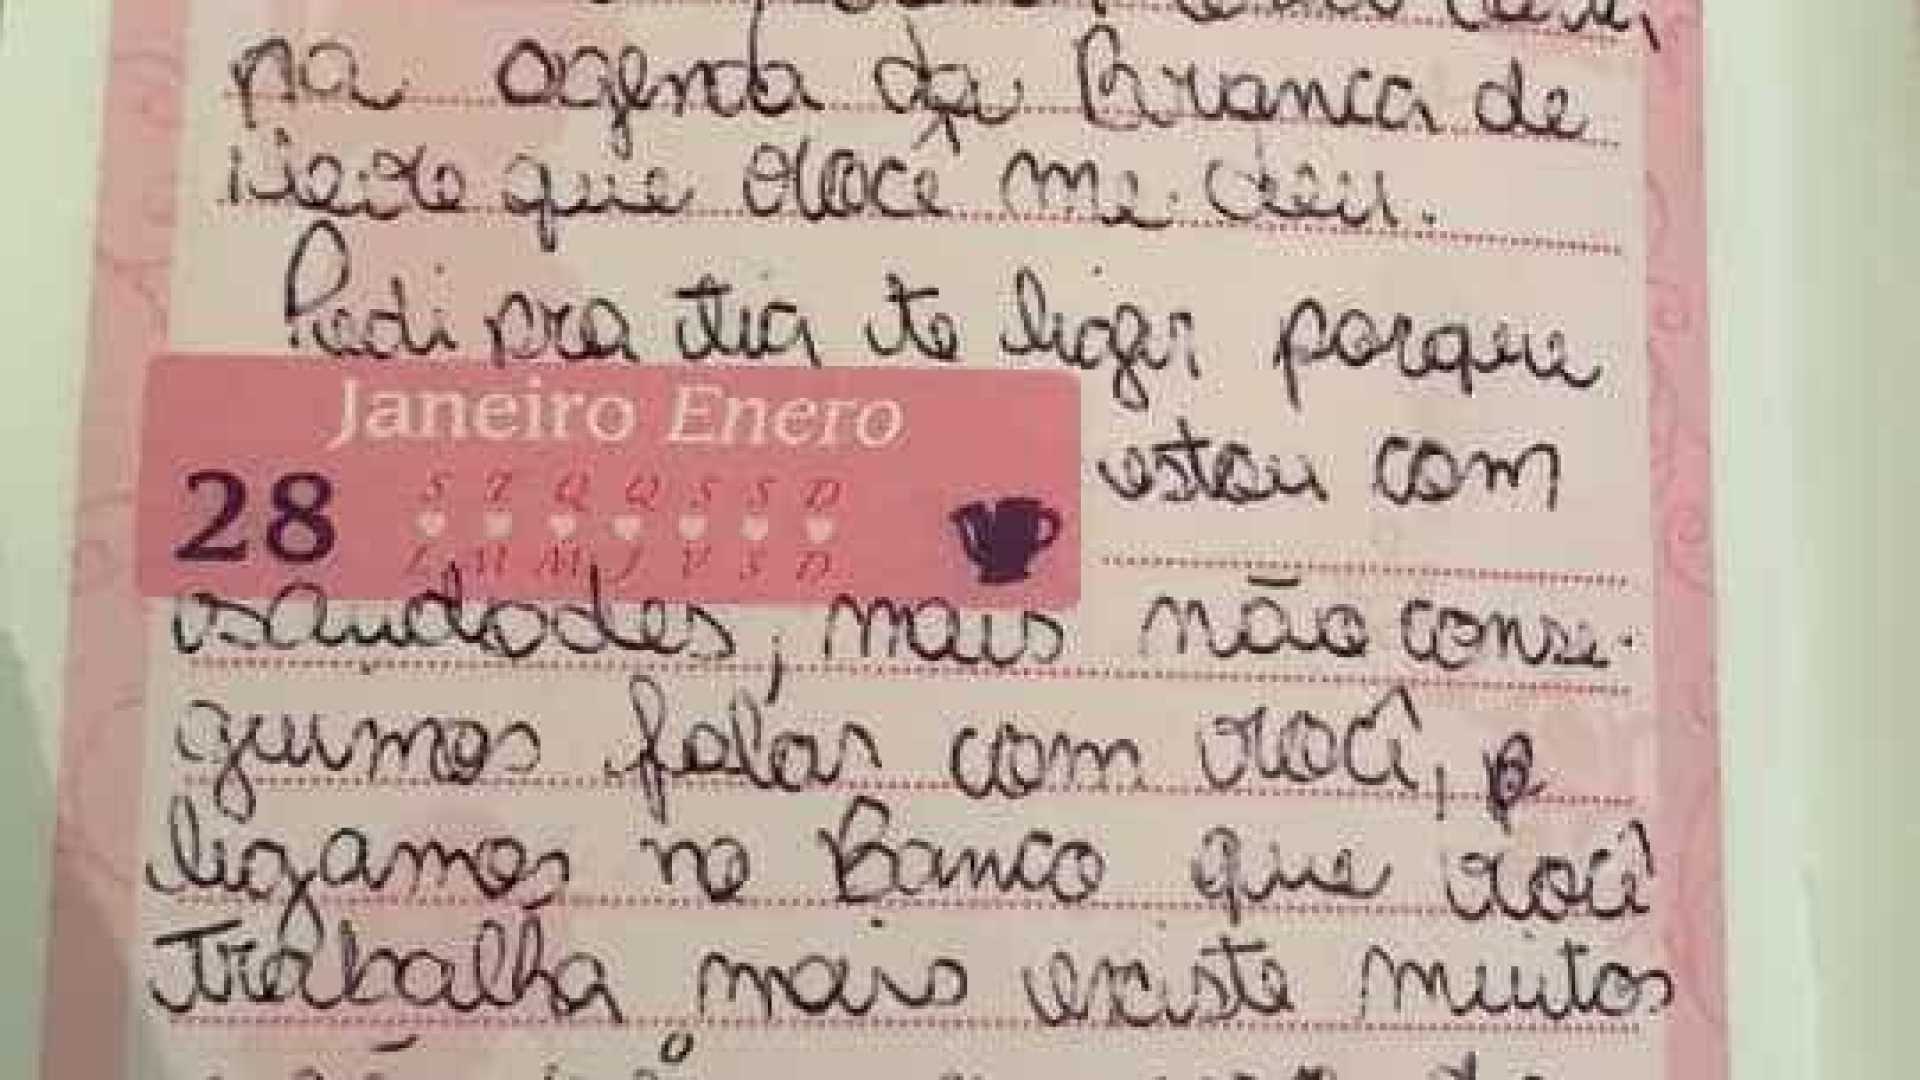 na agenda da Branca de
Neve que você me deu.
Pedi pra tia te ligar porque
Janeiro Enero
estou com
28
S T Q Q S S D
L M M J V S D
saudades, mais não conse-
guimos falar com você, e
ligamos no Banco que você
Trabalha mais existe muitos